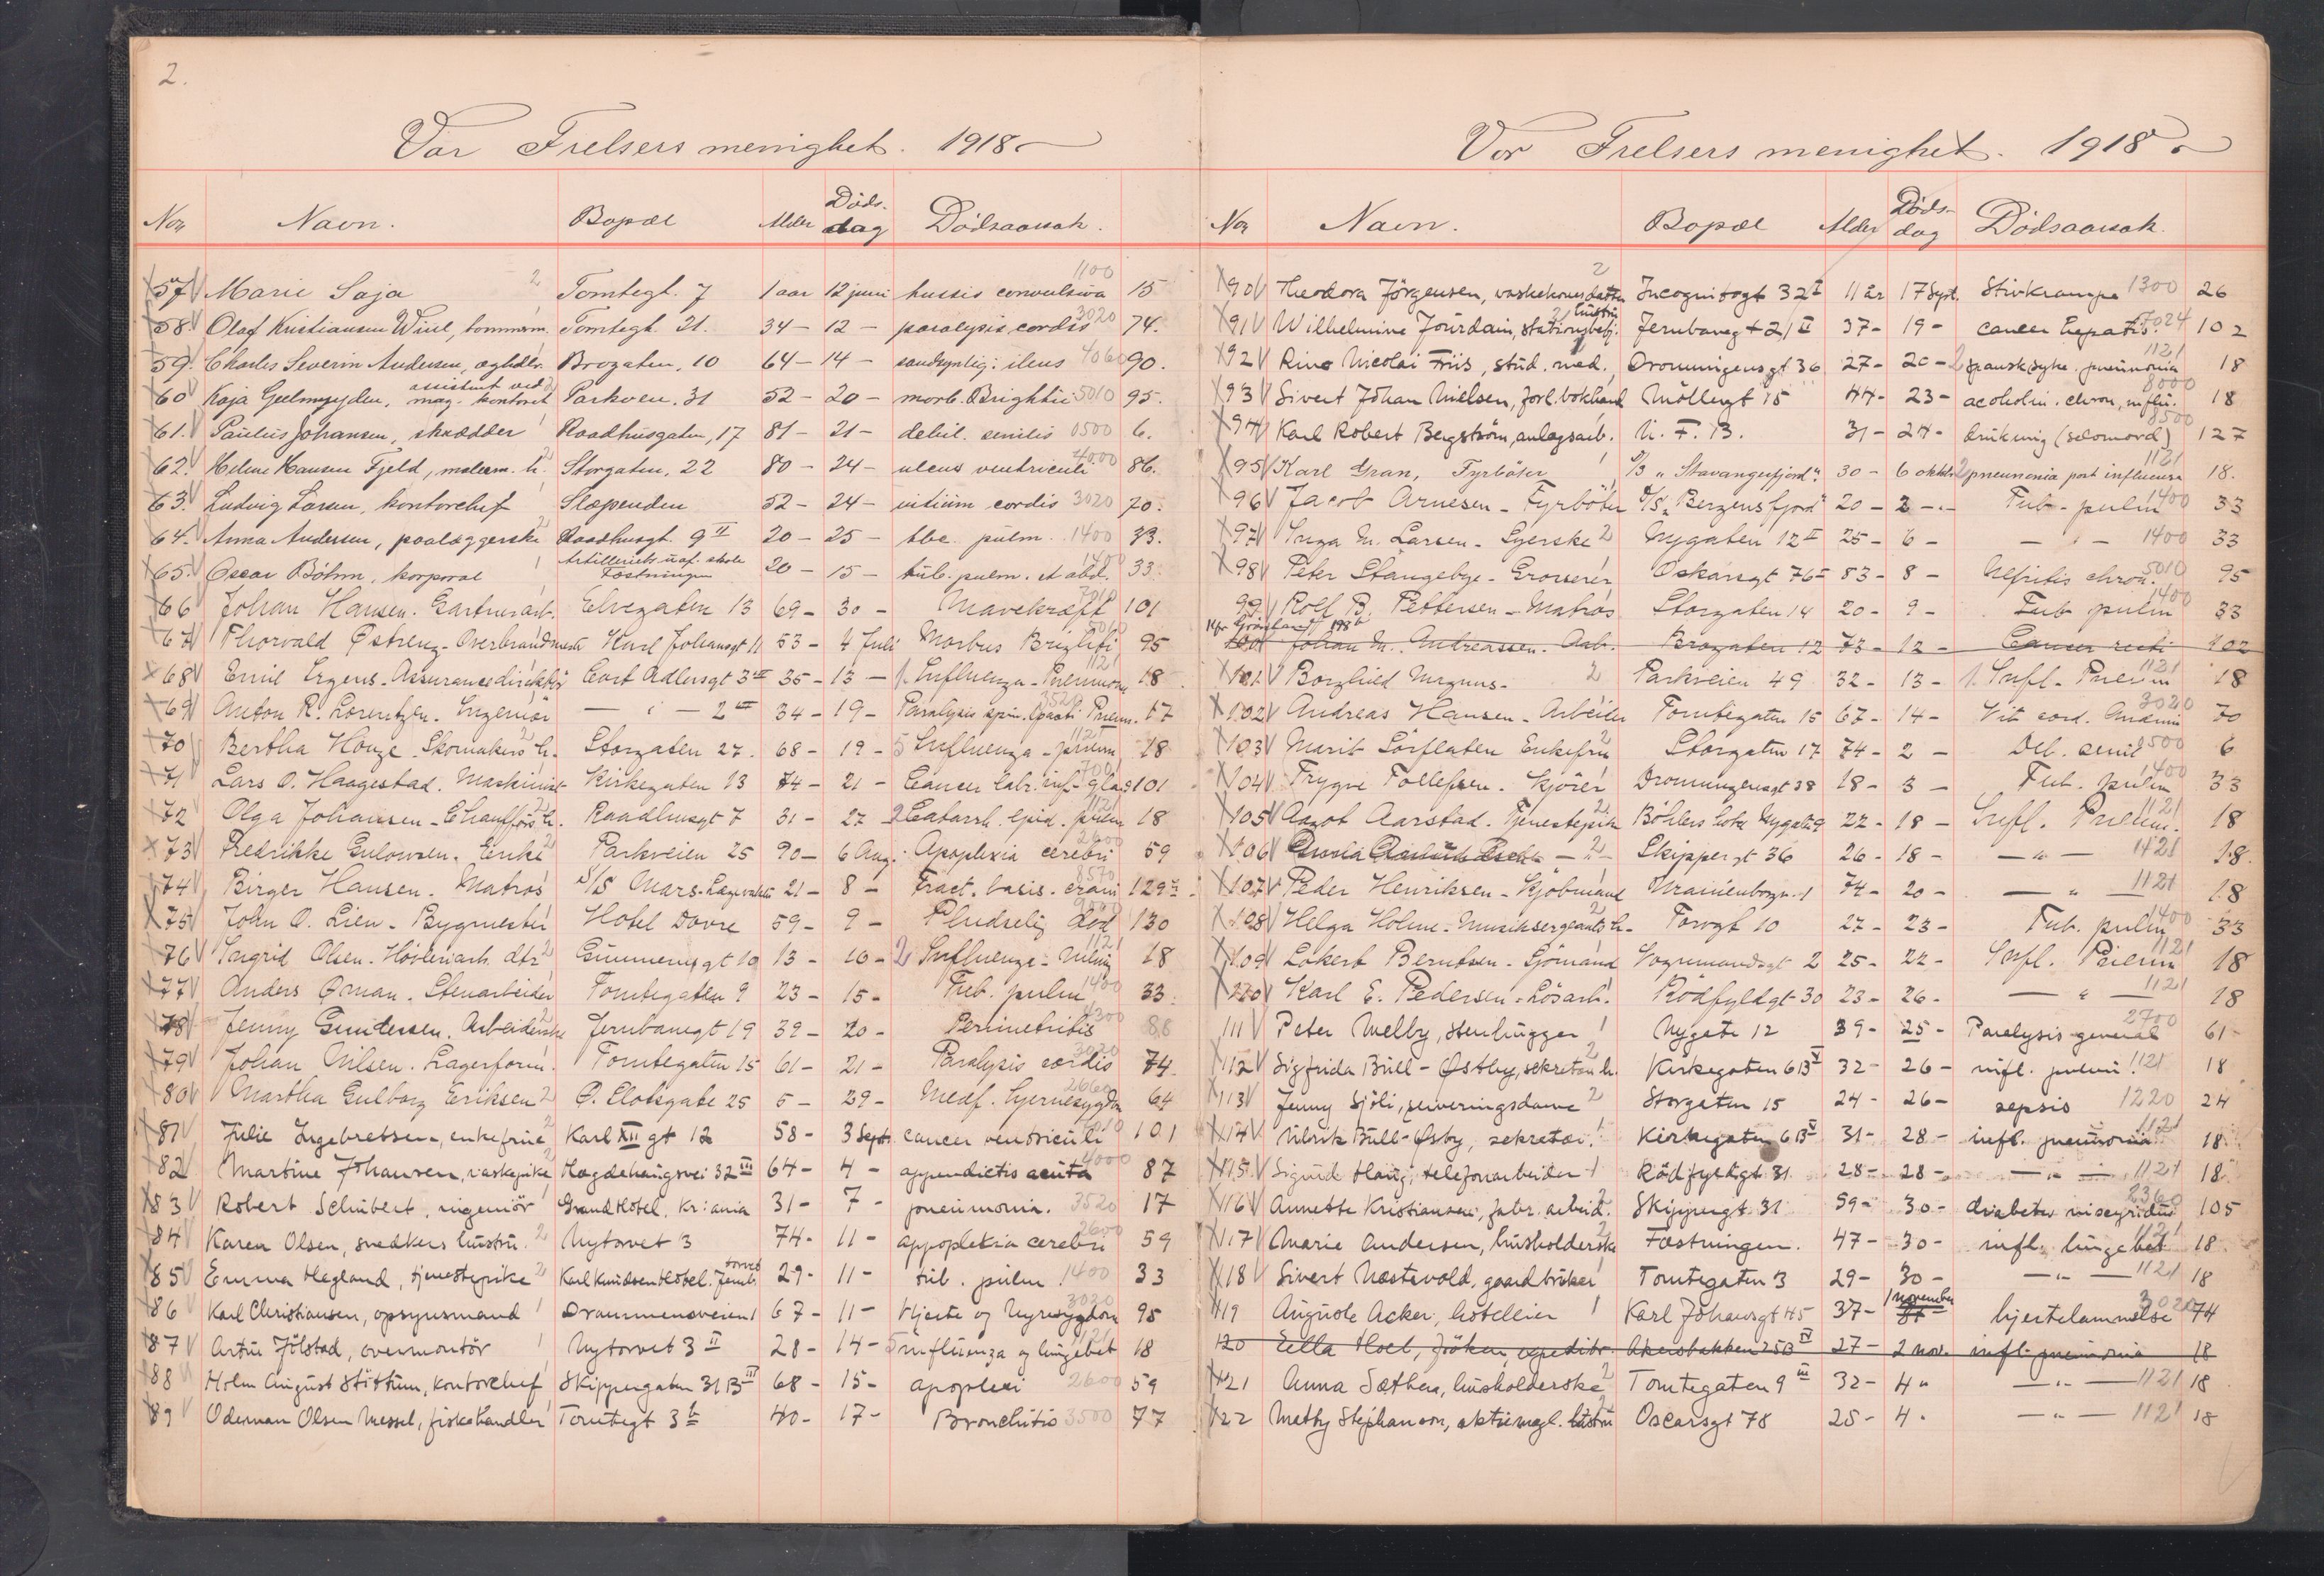 2.
Vor Frelsers menighet. 1918.
No Navn. Bopæl Alder Døds-dag Dødsaarsak.
57 Marie Saja 2 Tomtegt. 7 1 aar 12 juni tussis convulsiva 1100 15
58 Olaf Kristiansen Wiul, tømmerm. Tomtegt. 21. 34 - 12 - paralysis cordis 3020 74.
59. Charles Severin Andersen, Brogaten, 10 64 - 14 - sandsynlig: ileus 4060 90.
60 Kaja Geelmuyden, assistent ved mag. kontoret Parkveien. 31 52 - 20 - morb. Brightii 5010 95.
61. Paulus Johansen, skrædder Raadhusgaten, 17 81 - 21 - debil. senilis 0500 6.
62. Helene Hansen Fjeld, malerm. h. 2 Storgaten, 22 80 - 24 - ulcus ventriculi 4000 86.
63. Ludvig Larsen, kontorchef Slæpenden 52 - 24 - vitium cordis 3020 70.
64. Anna Andersen, paalæggerske 2 Raadhusgt. 9 II 20 - 25 - tbc. pulm. 1400 33.
65. Oscar Böhm, korporal Artilleriets u.of. skole Fæstningen 20 - 15 - tub. pulm. et abd. 1400 33
66 Johan Hansen. Gartnerarb. Elvegaten 13 69 - 30 - Mavekræft 7010 101
67 Thorvald Østreng - Overbrandmester Karl Johansgt 11 53 - 4 Juli Morbus Brightii 5010 95
68 Emil Ergens - Assurancedirektör Cort Adlersgt 3 III 35 - 13 - 1. Influenza - Pneumoni 1121 18
69 Anton R. Lorentzen. Ingeniör — " — 2 III 34 - 19 - Paralysis spin. spasti Pneum. 3520 17
70 Bertha Houge. Skomakers h. 2 Storgaten 27. 68 - 19 - 5 Influenza - pneum 1121 18
71 Lars O. Haagestad. Maskinist Kirkegaten 13 74 - 21 - Cancer labr. inf. 7001 101
72 Olga Johansen - Chaufförs h. 2 Raadhusgt 7 31 - 27 - 2 Catarrh. epid. pulm 1121 18
73 Fredrikke Gulowsen. Enke 2 Parkveien 25 90 - 6 Aug. Apoplexia cerebri 2600 59
74 Birger Hansen - Matros S/S Mars. 21 - 8 - Fract. basis. cranii 8570 129
75 John O. Lien - Bygmester Hotel Dovre 59 - 9 - Pludselig död 9000 130
76 Ingrid Olsen - Høvleriarb. dtr 2 Gunnerusgt 10 13 - 10 - 2 Influenza - 1121 18
77 Anders Öman. Stenarbeider Tomtegaten 9 23 - 15 - Tub. pulm 1400 33.
78 Jenny Gundersen. Arbeiderske 2 Jernbanegt 19 39 - 20 - Perimetritis 4300 88
79 Johan Nilsen. Lagerform. Tomtegaten 15 61 - 21 - Paralysis cordis 3020 74
80 Martha Gulborg Eriksen 2 O. Slotsgate 25 5 - 29 - Medf. hjernesygdm 2660 64
81 Julie Ingebretsen, enkefrue 2 Karl XII gt 12 58 - 3 Sept. cancer ventriculi 7010 101
82 Martine Johansen, vaskepike 2 Hægdehaugsvei 32 III 64 - 4 - appendictis acuta 4000 87
83 Robert Schubert, ingeniör Grand Hotel. Kr:ania 31 - 7 - pneumonia. 3520 17
84 Karen Olsen, snedkers hustru. 2 Nytorvet 3 74 - 11 - appoplexia cerebri 2600 59
85 Emma Hegland, tjenestepike 2 Karl Knudsen Hotel. Jernb. torvet 29 - 11 - tub. pulm 1400 33
86 Karl Christiansen, opsynsmand Drammensveien 1 67 - 11 - Hjerte og Nyresygdom 3020 95
87 Artur Jölstad, overmontör Nytorvet 3 II 28 - 14 - 5 influenza og lungebet 1121 18
88 Holm August Stöttum, kontorchef Skippergaten 31 B III 68 - 15 - apoplexi 2600 59
89 Oderman Olsen Messel, fiskehandler Tomtegt 3 40 - 17 - Bronchitis 3500 77
Vor Frelsers menighet. 1918.
No Navn. Bopæl Alder Døds-dag Dødsaarsak.
90 Theodora Jörgensen, vaskekones datter 2 Incognitogt 32 I 11 år 17 Sept. Stivkrampe 1300 26
91 Wilhelmine Jourdain, stationsbetj. hustru 2 Jernbanegt 21 II 37 - 19 - cancer hepatis. 7024 102
92 Nicolai Friis, stud. med. Dronningensgt 36 27 - 20 - 2 spansksyke. pneumonia 1121 18
93 Sivert Johan Nielsen, forl. bokhand Möllergt 15 44 - 23 - acoholin. chron, influ. 8000 18
94 Karl Robert Bergström, anlægsarb. V. F. 13. 31 - 24 - drukning (selvmord) 8500 127
95 Karl Gran, Fyrböter S/S "Stavangerfjord" 30 - 6 oktbr 2 pneumonia post influensa 1121 18.
96 Jacob Arnesen - Fyrböter S/S "Bergensfjord" 20 - 2 - Tub - pulm 1400 33
97 Inga M. Larsen - Syerske 2 Nygaten 12 II 25 - 6 - — " — 1400 33
98 Peter Stangebye - Grosserer Oskarsgt 76 I 83 - 8 - Nefritis chron. 5010 95
99 Rolf B. Pettersen - Matros Storgaten 14 20 - 9 - Tub pulm 1400 33
100 Johan M. Andreassen - Arb. Brogaten 12 73 - 12 - Cancer recti 102
101 Borghild Magnus - 2 Parkveien 49 32 - 13 - 1. Infl. - Pneum 1121 18
102 Andreas Hansen - Arbeider Tomtegaten 15 67 - 14 - Vit cord. 3020 70
103 Marit Sörflaten Enkefru 2 Storgaten 17 74 - 2 - Deb. senil 0500 6
104 Trygve Tollefsen. Kjörer Dronningensgt 38 18 - 3 - Tub. pulm 1400 33
105 Aagot Aarstad. Tjenestepike 2 Böhlers hotel Nygaten 9 22 - 18 - Infl. Pneum. 1121 18
106 — " — 2 Skippergt 36 26 - 18 - — " — 1121 18.
107 Peder Henriksen - Kjöbmand Uranienborgv. 1 74 - 20 - — " — 1121 18
108 Helga Holme - Musiksergeants h - 2 Torvgt 10 27 - 23 - Tub. pulm 1400 33
109 Lokert Berntsen - Sjömand Vognmandsgt 2 25 - 22 - Infl. Pneum 1121 18
110 Karl E. Pedersen - Lösarb. Rödfyldgt 30 23 - 26 - — " — 1121 18
111 Peter Melby, stenhugger Nygate 12 39 - 25 - Paralysis general 2700 61 -
112 Sigfrida Bull - Østby, sekretær h. 2 Kirkegaten 6 B V 32 - 26 - infl. pneum. 1121 18
113 Jenny Sjöli, serveringsdame 2 Storgaten 15 24 - 26 - sepsis 1220 24
114 Ulrik Bull - Østby, sekretær. Kirkegaten 6 B V 31 - 28 - infl. pneumonia 1121 18
115 Sigurd Haug, telefonarbeider Rödfyldgt 31 28 - 28 - — " — 1121 18
116 Annette Kristiansen, fabr. arbeid. 2 Skippergt 31 59 - 30 - diabetes 2360 105
117 Marie Andersen, husholderske 2 Fæstningen. 47 - 30 - infl. lungebet 1121 18
118 Sivert Næstevold, gaardbruker Tomtegaten 3 29 - 30 - — " — 1121 18
119 Auguste Acker, hotelleier Karl Johansgt 45 37 - 31 - 1 november hjertelammelse 3020 74
120 Ella Hoel, fröken, expeditr. Akersbakken 25 B IV 27 - 2 nov. infl. pneumonia 18
121 Anna Sæthen, husholderske 2 Tomtegaten 9 III 32 - 4 " — " — 1121 18
122 Mathy Stephanson, aktiemegl. hustru 2 Oscarsgt 78 25 - 4 " — " — 1121 18